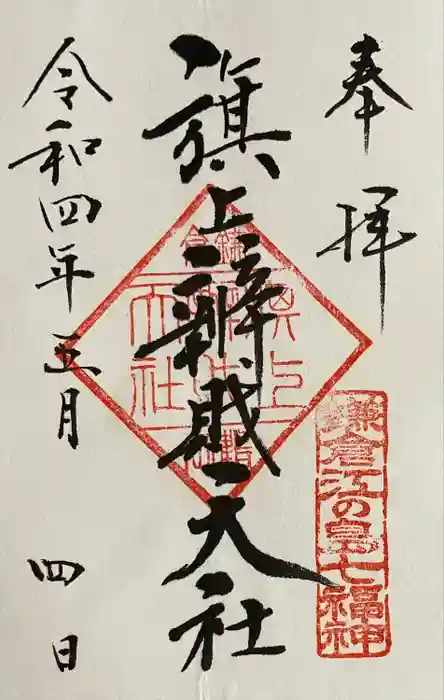 奉拝
旗上辨財天社
鎌倉江の島七福神
令和四年五月四日